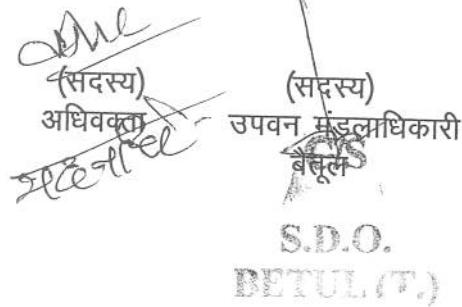 (सदस्य)
अधिवक्ता
(सदस्य)
उपवन मंडलाधिकारी
बैतूल
S.D.O.
BETUL (T.)